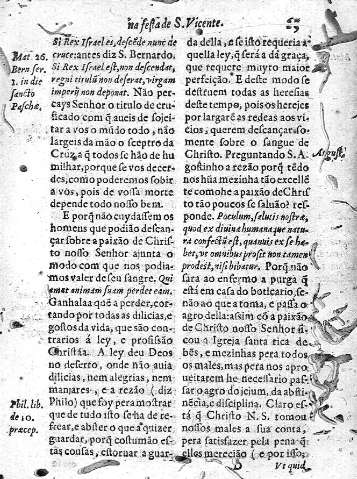 na festa de S. Vicente.
63
Mat. 26.
Bern ser.
1. in die
sancto
Paschæ.
Si Rex Israel es, descẽde nunc de
cruce: antes diz S. Bernardo.
Si Rex Israel est, non descendat,
regni titulũ non deserat, virgam
imperij non deponat. Não per-
cays Senhor o titulo de cru-
cificado com q̃ aueis de sojei-
tar a vos o mũdo todo, não
largeis da mão o sceptro da
Cruz a q̃ todos se hão de hu-
milhar, porque se vos decer-
des, como poderemos sobir
a vós, pois de vossa morte
depende todo nosso bem.
E porq̃ não cuydassem os
homens que podião descan-
çar sobre a paixão de Chris-
to nosso Senhor ajunta o
modo com que nos podia-
mos valer de seu sangue. Qui
amat animam suam perdet eam.
Ganhalaa quẽ a perder, cor-
tando por todas as dilicias, e
gostos da vida, que são con-
trarios á ley, e profissão
Christãa. A ley deu Deos
no deserto, onde não auia
dilicias, nem alegrias, nem
manjares, e a rezão (diz
Philo) que foy pera mostrar
que de tudo isso se ha de re-
frear, e abster o que a quizer
guardar, porq̃ costumão es-
tas cousas, estoruar a guar-
Phil. lib.
de 10.
præcep.
da della, e se isto requeria a
quella ley, q̃ será a dá graça,
que requere muyto maior
perfeição. E deste modo se
destruem todas as heresias
deste tempo, pois os herejes
por largaré as redeas aos vi-
cios, querem descançar so-
mente sobre o sangue de
Christo. Preguntando S. A-
gostinho a rezão porq̃ tẽdo
nós hũa mezinha tão excellẽ
te como he a paixão de Chris
to tão poucos se saluão? res-
ponde. Poculum, salutis nostræ,
quod ex diuina humana que natu
ra confectũ est, quamuis ex se ha-
bet, vt omnibus prosit non tamen
prodeit, nisi bibatur. Porq̃ não
sara ao enfermo a purga q̃
está em casa do boticario, se-
não ao que a toma, e passa o
agro della: assim cõ a paixão
de Christo nosso Senhor fi-
cou a Igreja santa rica de
bẽs, e mezinhas pera todos
os males, mas pera nos apro
ueitarem he necessario pas-
sar o agro do jejum, da absti-
nẽcia, e disciplina. Claro es-
tá q̃ Christo N. S. tomou
nossos males a sua conta,
pera satisfazer pela pena q̃
elles merecião (e por isso;
August.
B
Vt quid